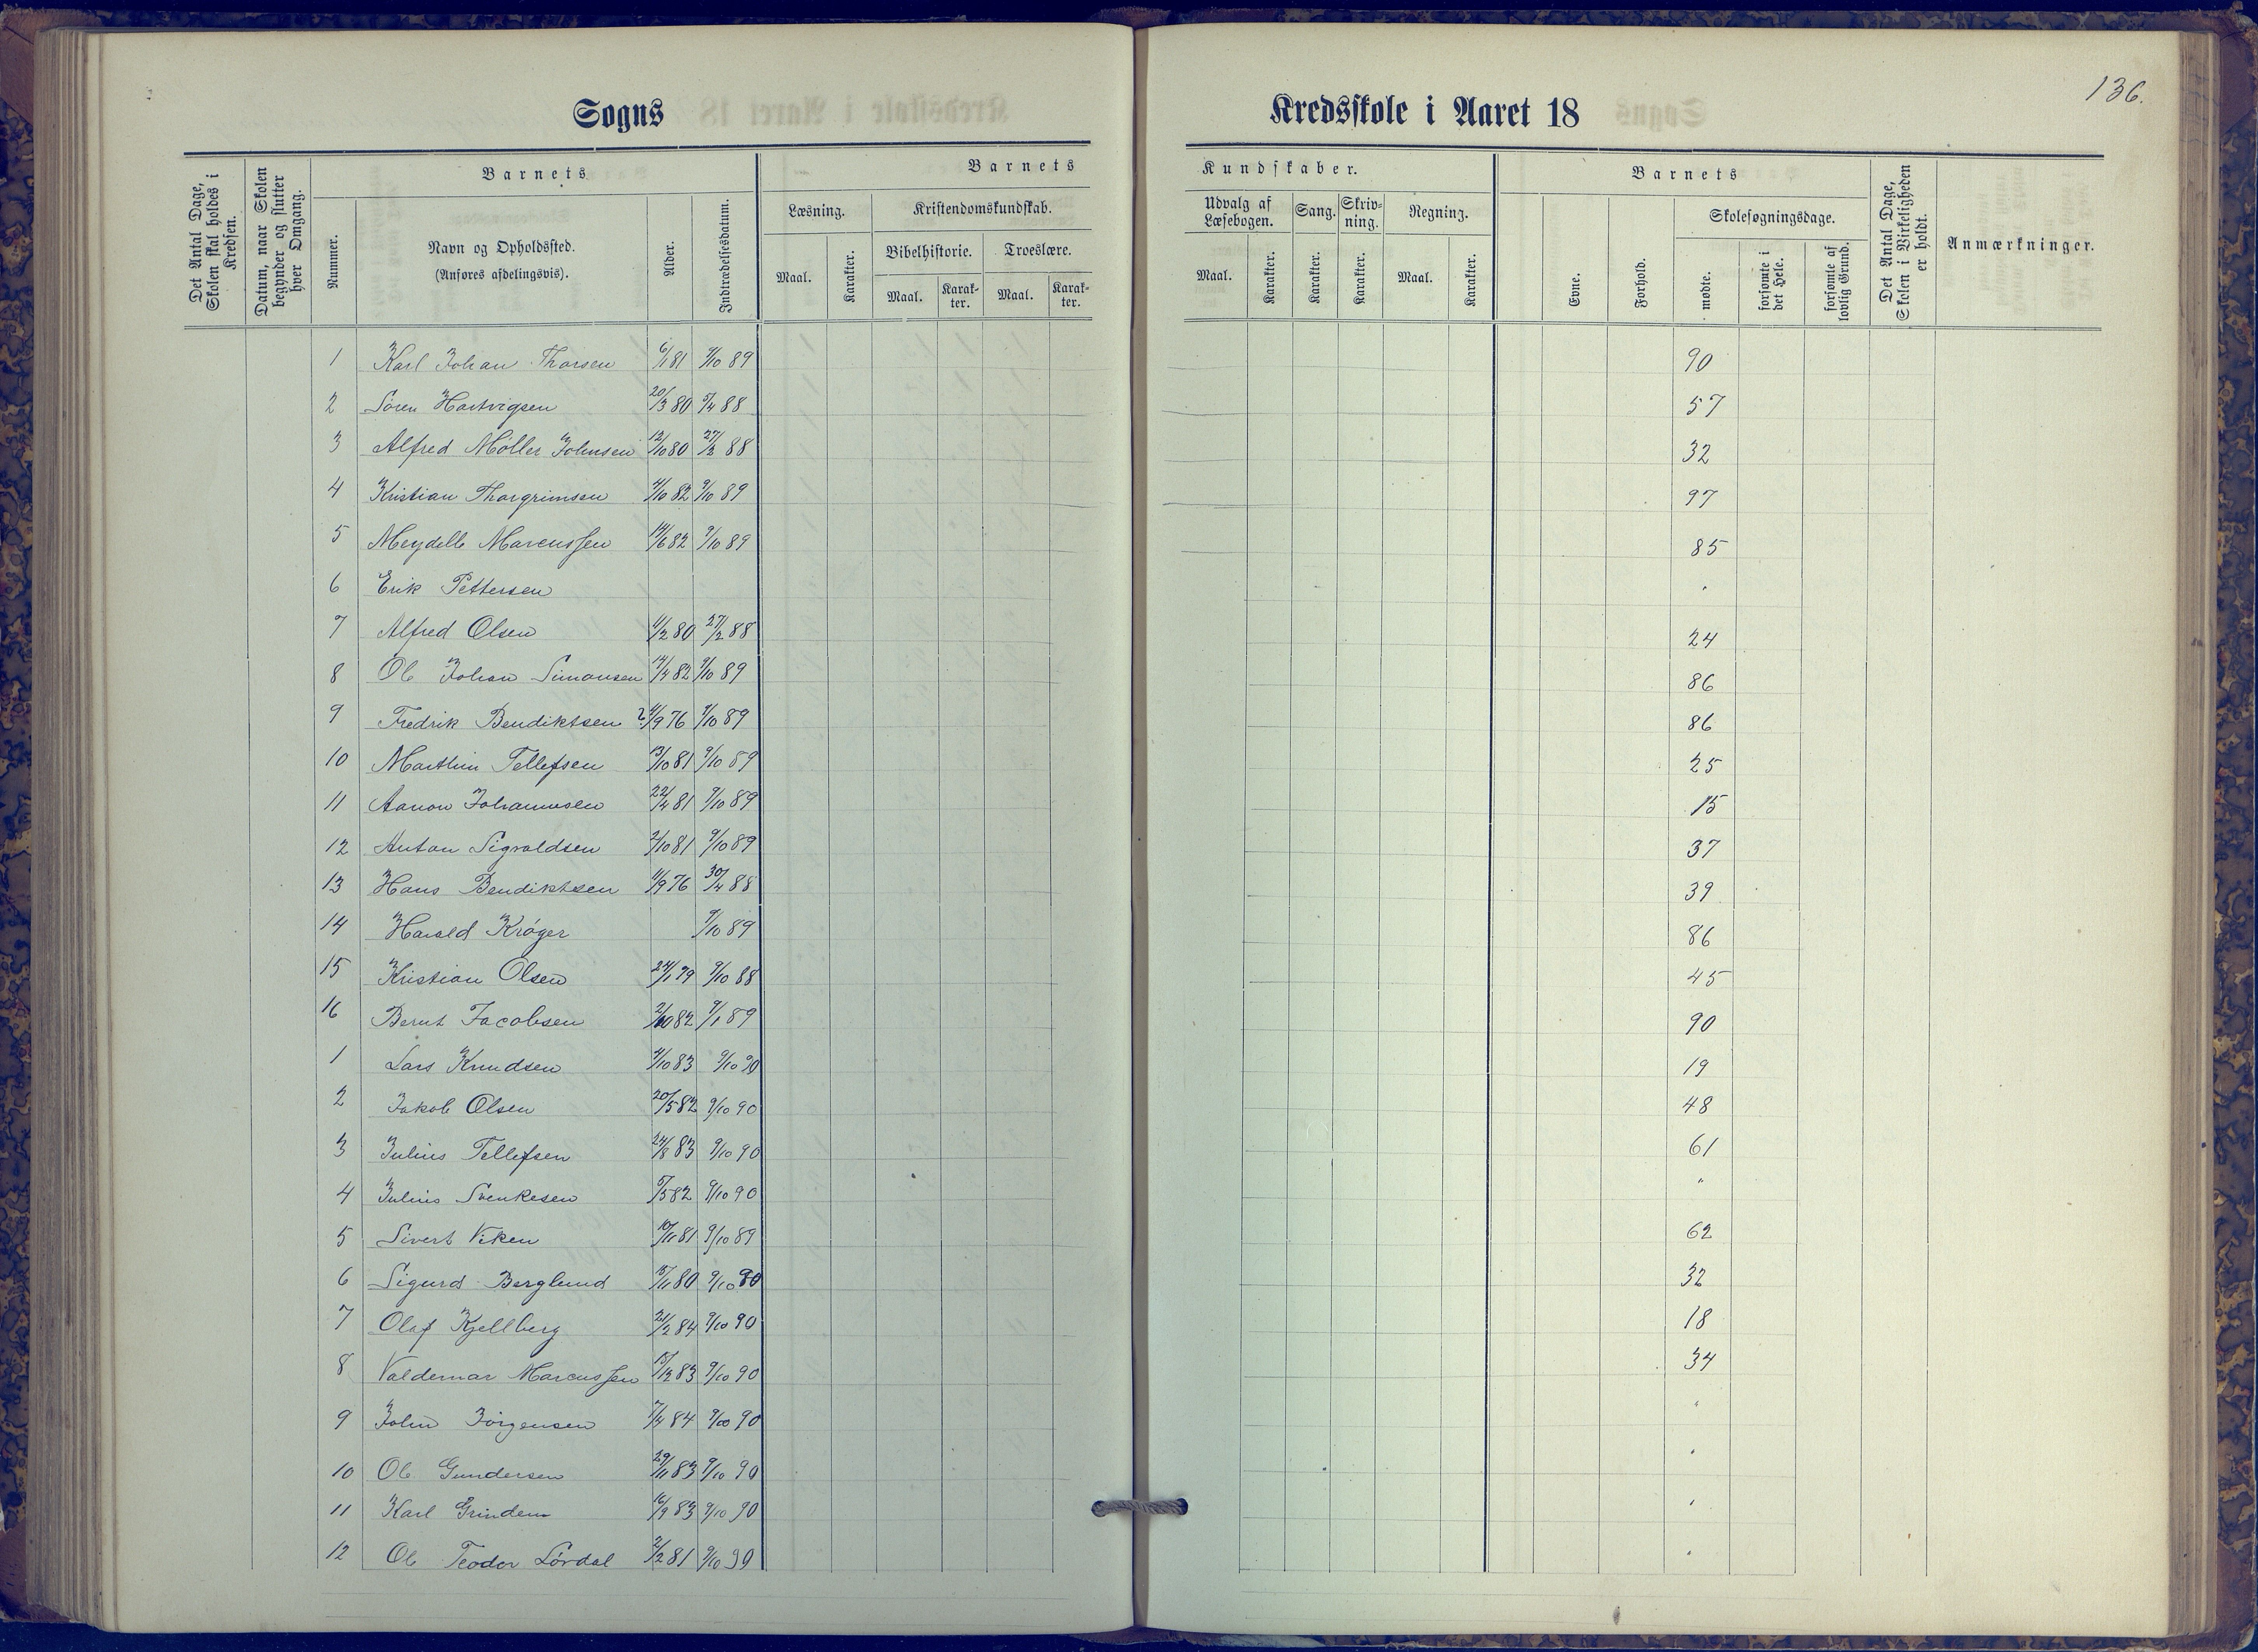 136.
Sogns Kredsskole i Aaret 18
Det Antal Dage, Skolen skal holdes i Kredsen.
Datum, naar Skolen begynder og slutter hver Omgang.
Barnets
Nummer.
Navn og Opholdssted.
(Anføres afdelingsvis).
Alder.
Indtrædelsesdatum.
Barnets Kundskaber.
Læsning.
Maal.
Karakter.
Kristendomskundskab.
Bibelhistorie.
Maal.
Karakter.
Troeslære.
Maal.
Karakter.
Udvalg af Læsebogen.
Maal.
Karakter.
Sang.
Karakter.
Skrivning.
Karakter.
Regning.
Maal.
Karakter.
Barnets
Evne.
Forhold.
Skolesøgningsdage.
mødte.
forsømte i det Hele.
forsømte af lovlig Grund.
Det Antal Dage, Skolen i Virkeligheden er holdt.
Anmærkninger.
1 Karl Johan Thorsen 6/1 81 9/10 89 90
2 Sören Hartvigsen 20/3 80 5/4 88 57
3 Alfred Möller Johnsen 12/10 80 27/2 88 32
4 Kristian Thorgrimsen 4/10 82 9/10 89 97
5 Meydell Marcussen 14/6 82 9/10 89 85
6 Erik Pettersen "
7 Alfred Olsen 11/2 80 27/2 88 24
8 Ole Johan Simonsen 14/4 82 9/10 89 86
9 Fredrik Bendiktsen ? 11/9 76 9/10 89 86
10 Marthin Tellefsen 13/10 81 9/10 89 25
11 Aanon Johannesen 22/4 81 9/10 89 15
12 Anton Sigvaldsen 2/10 81 9/10 89 37
13 Hans Bendiktsen 11/9 76 30/4 88 39
14 Harald Kröger 9/10 89 86
15 Kristian Olsen 24/1 79 9/10 88 45
16 Bernt Jacobsen 2/10 82 9/1 89 90
1 Lars Knudsen 4/10 83 9/10 90 19
2 Jakob Olsen 20/5 82 9/10 90 48
3 Julius Tellefsen 24/8 83 9/10 90 61
4 Julius Svenkesen 5/5 82 9/10 90 "
5 Sivert Viken 10/11 81 9/10 89 62
6 Sigurd Berglund 15/11 80 9/10 90 32
7 Olaf Kjellberg 21/2 84 9/10 90 18
8 Valdemar Marcussen 15/12 83 9/10 90 34
9 John Jörgensen 7/4 84 9/10 90 "
10 Ole Gundersen 29/11 83 9/10 90 "
11 Karl Grindem 16/9 83 9/10 90 "
12 Ole Teodor Lördal 2/2 81 9/10 90 "